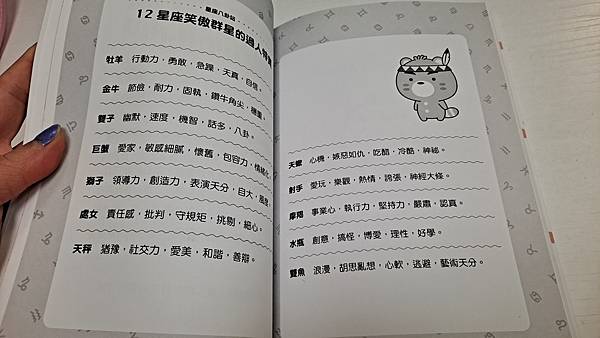 星座八卦站
12星座笑傲群星的過人特質
牡羊 行動力,勇敢,急躁,天真,自信。
金牛 節儉,耐力,固執,鑽牛角尖,穩重。
雙子 幽默,速度,機智,話多,八卦。
巨蟹 愛家,敏感細膩,懷舊,包容力,情緒化
獅子 領導力,創造力,表演天分,自大,風度
處女 責任感,批判,守規矩,挑剔,細心。
天秤 猶豫,社交力,愛美,和諧,善辯。
天蠍 心機,嫉惡如仇,吃醋,冷酷,神祕。
射手 愛玩,樂觀,熱情,誇張,神經大條。
摩羯 事業心,執行力,堅持力,嚴肅,認真。
水瓶 創意,搞怪,博愛,理性,好學。
雙魚 浪漫,胡思亂想,心軟,逃避,藝術天分。